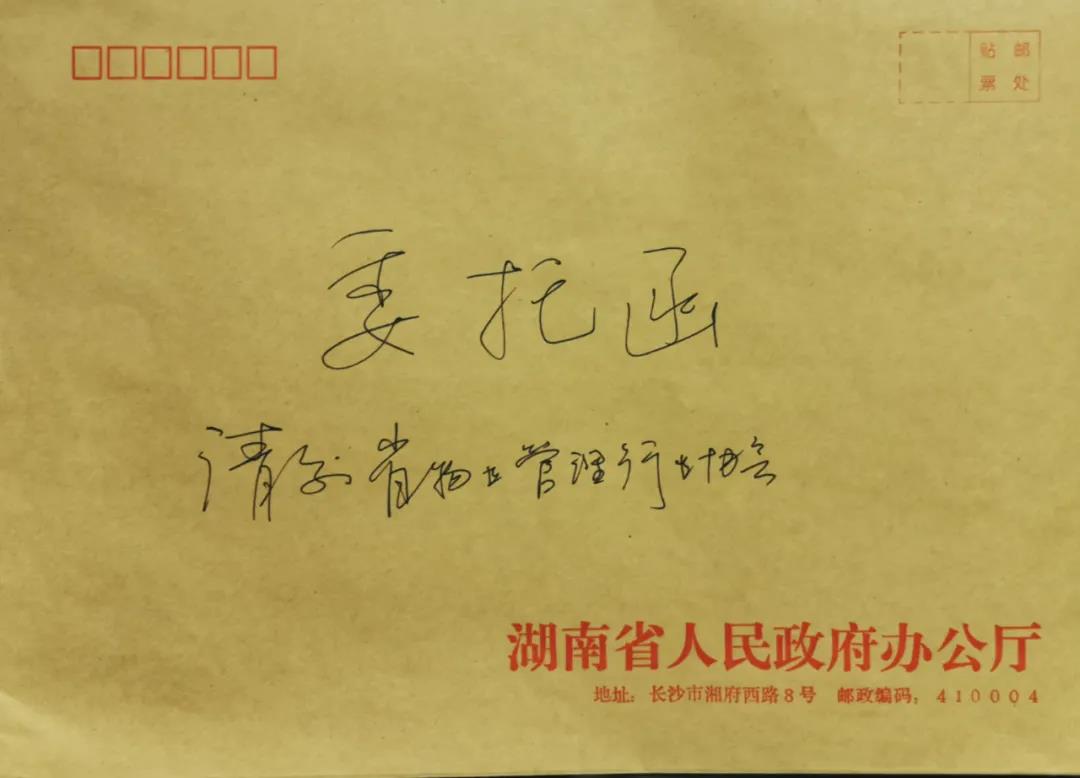 贴 邮
票 处
委托函
请 省物业管理行业协会
湖南省人民政府办公厅
地址：长沙市湘府西路8号 邮政编码：410004